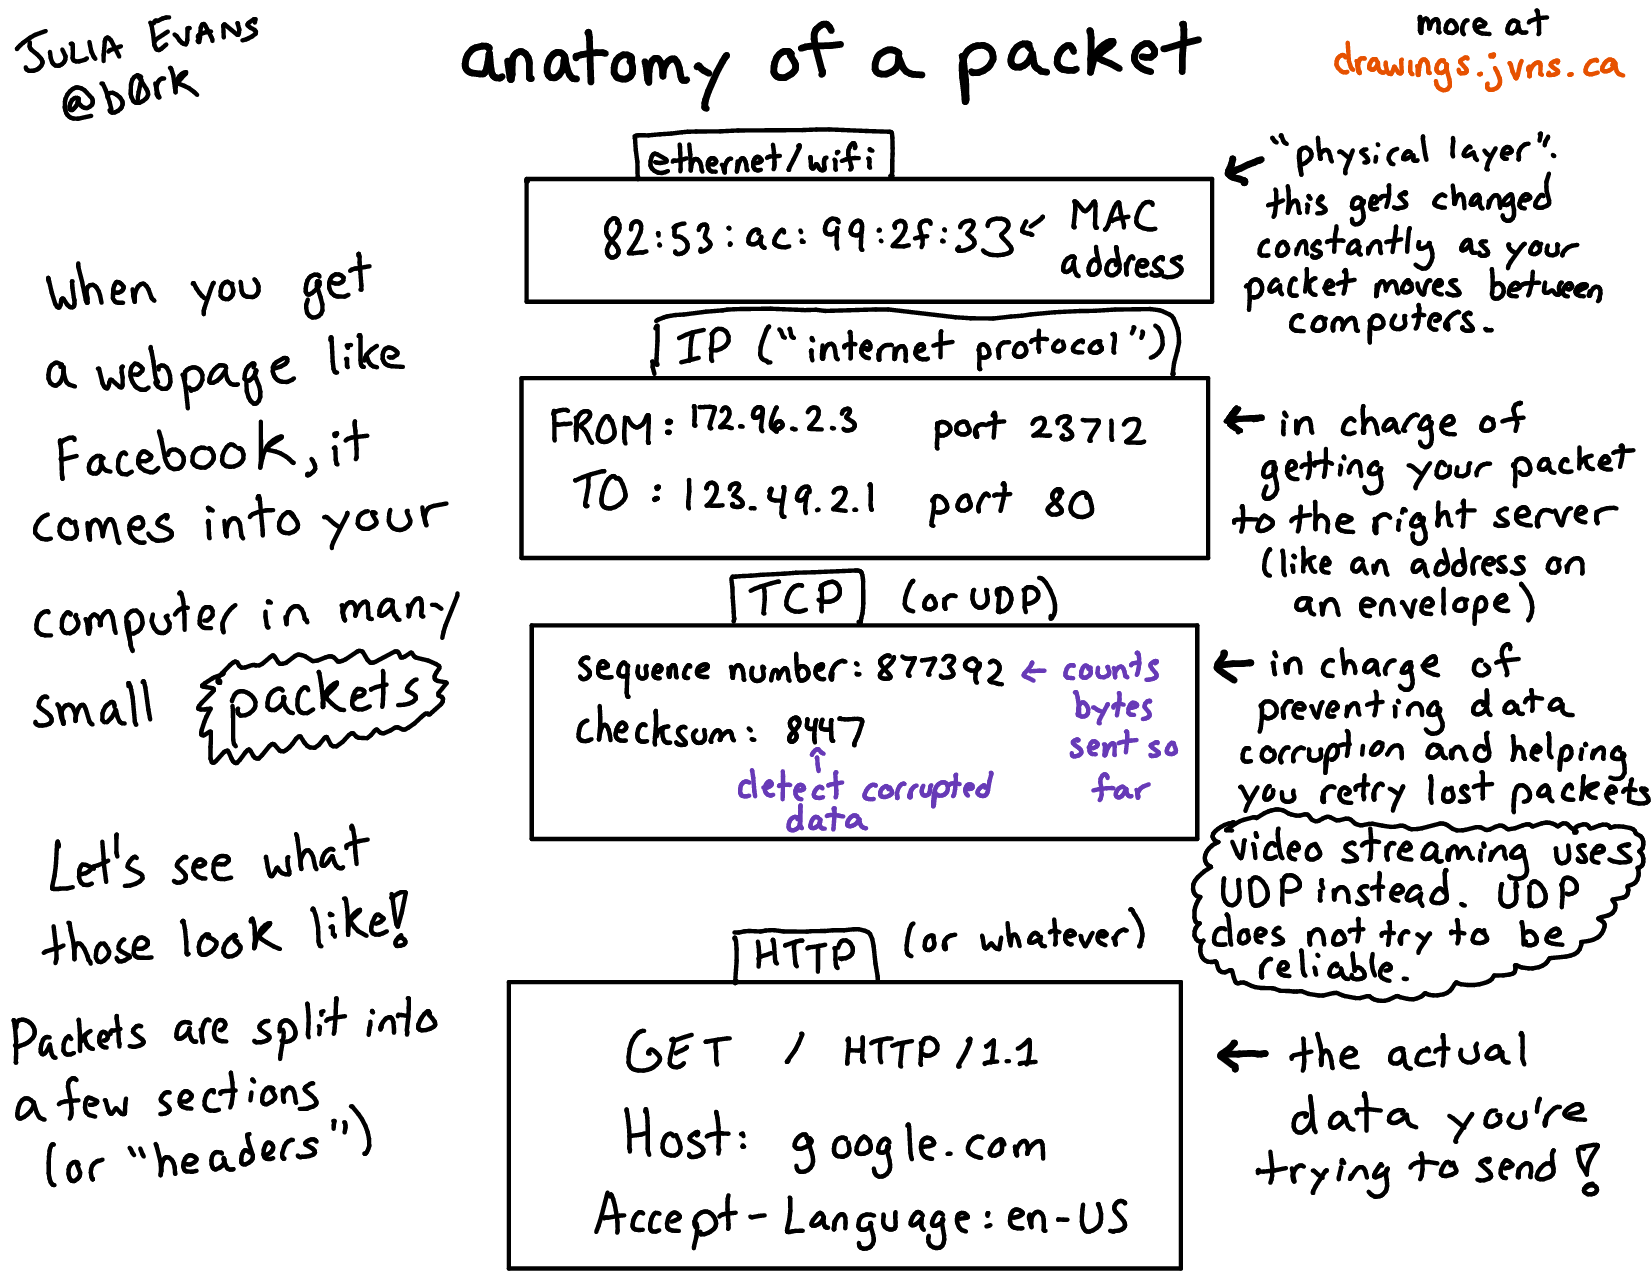 JULIA EVANS
@b0rk
anatomy of a packet
more at
drawings.jvns.ca
When you get
a webpage like
Facebook, it
comes into your
computer in many
small packets
Let's see what
those look like!
Packets are split into
a few sections
(or "headers")
ethernet/wifi
82:53:ac:99:2f:33 ← MAC
address
← "physical layer".
this gets changed
constantly as your
packet moves between
computers.
IP ("internet protocol")
FROM: 172.96.2.3 port 23712
TO: 123.49.2.1 port 80
← in charge of
getting your packet
to the right server
(like an address on
an envelope)
TCP (or UDP)
sequence number: 877392 ← counts
bytes
sent so
far
checksum: 8447
↑
detect corrupted
data
← in charge of
preventing data
corruption and helping
you retry lost packets
video streaming uses
UDP instead. UDP
does not try to be
reliable.
HTTP (or whatever)
GET / HTTP/1.1
Host: google.com
Accept-Language: en-US
← the actual
data you're
trying to send!